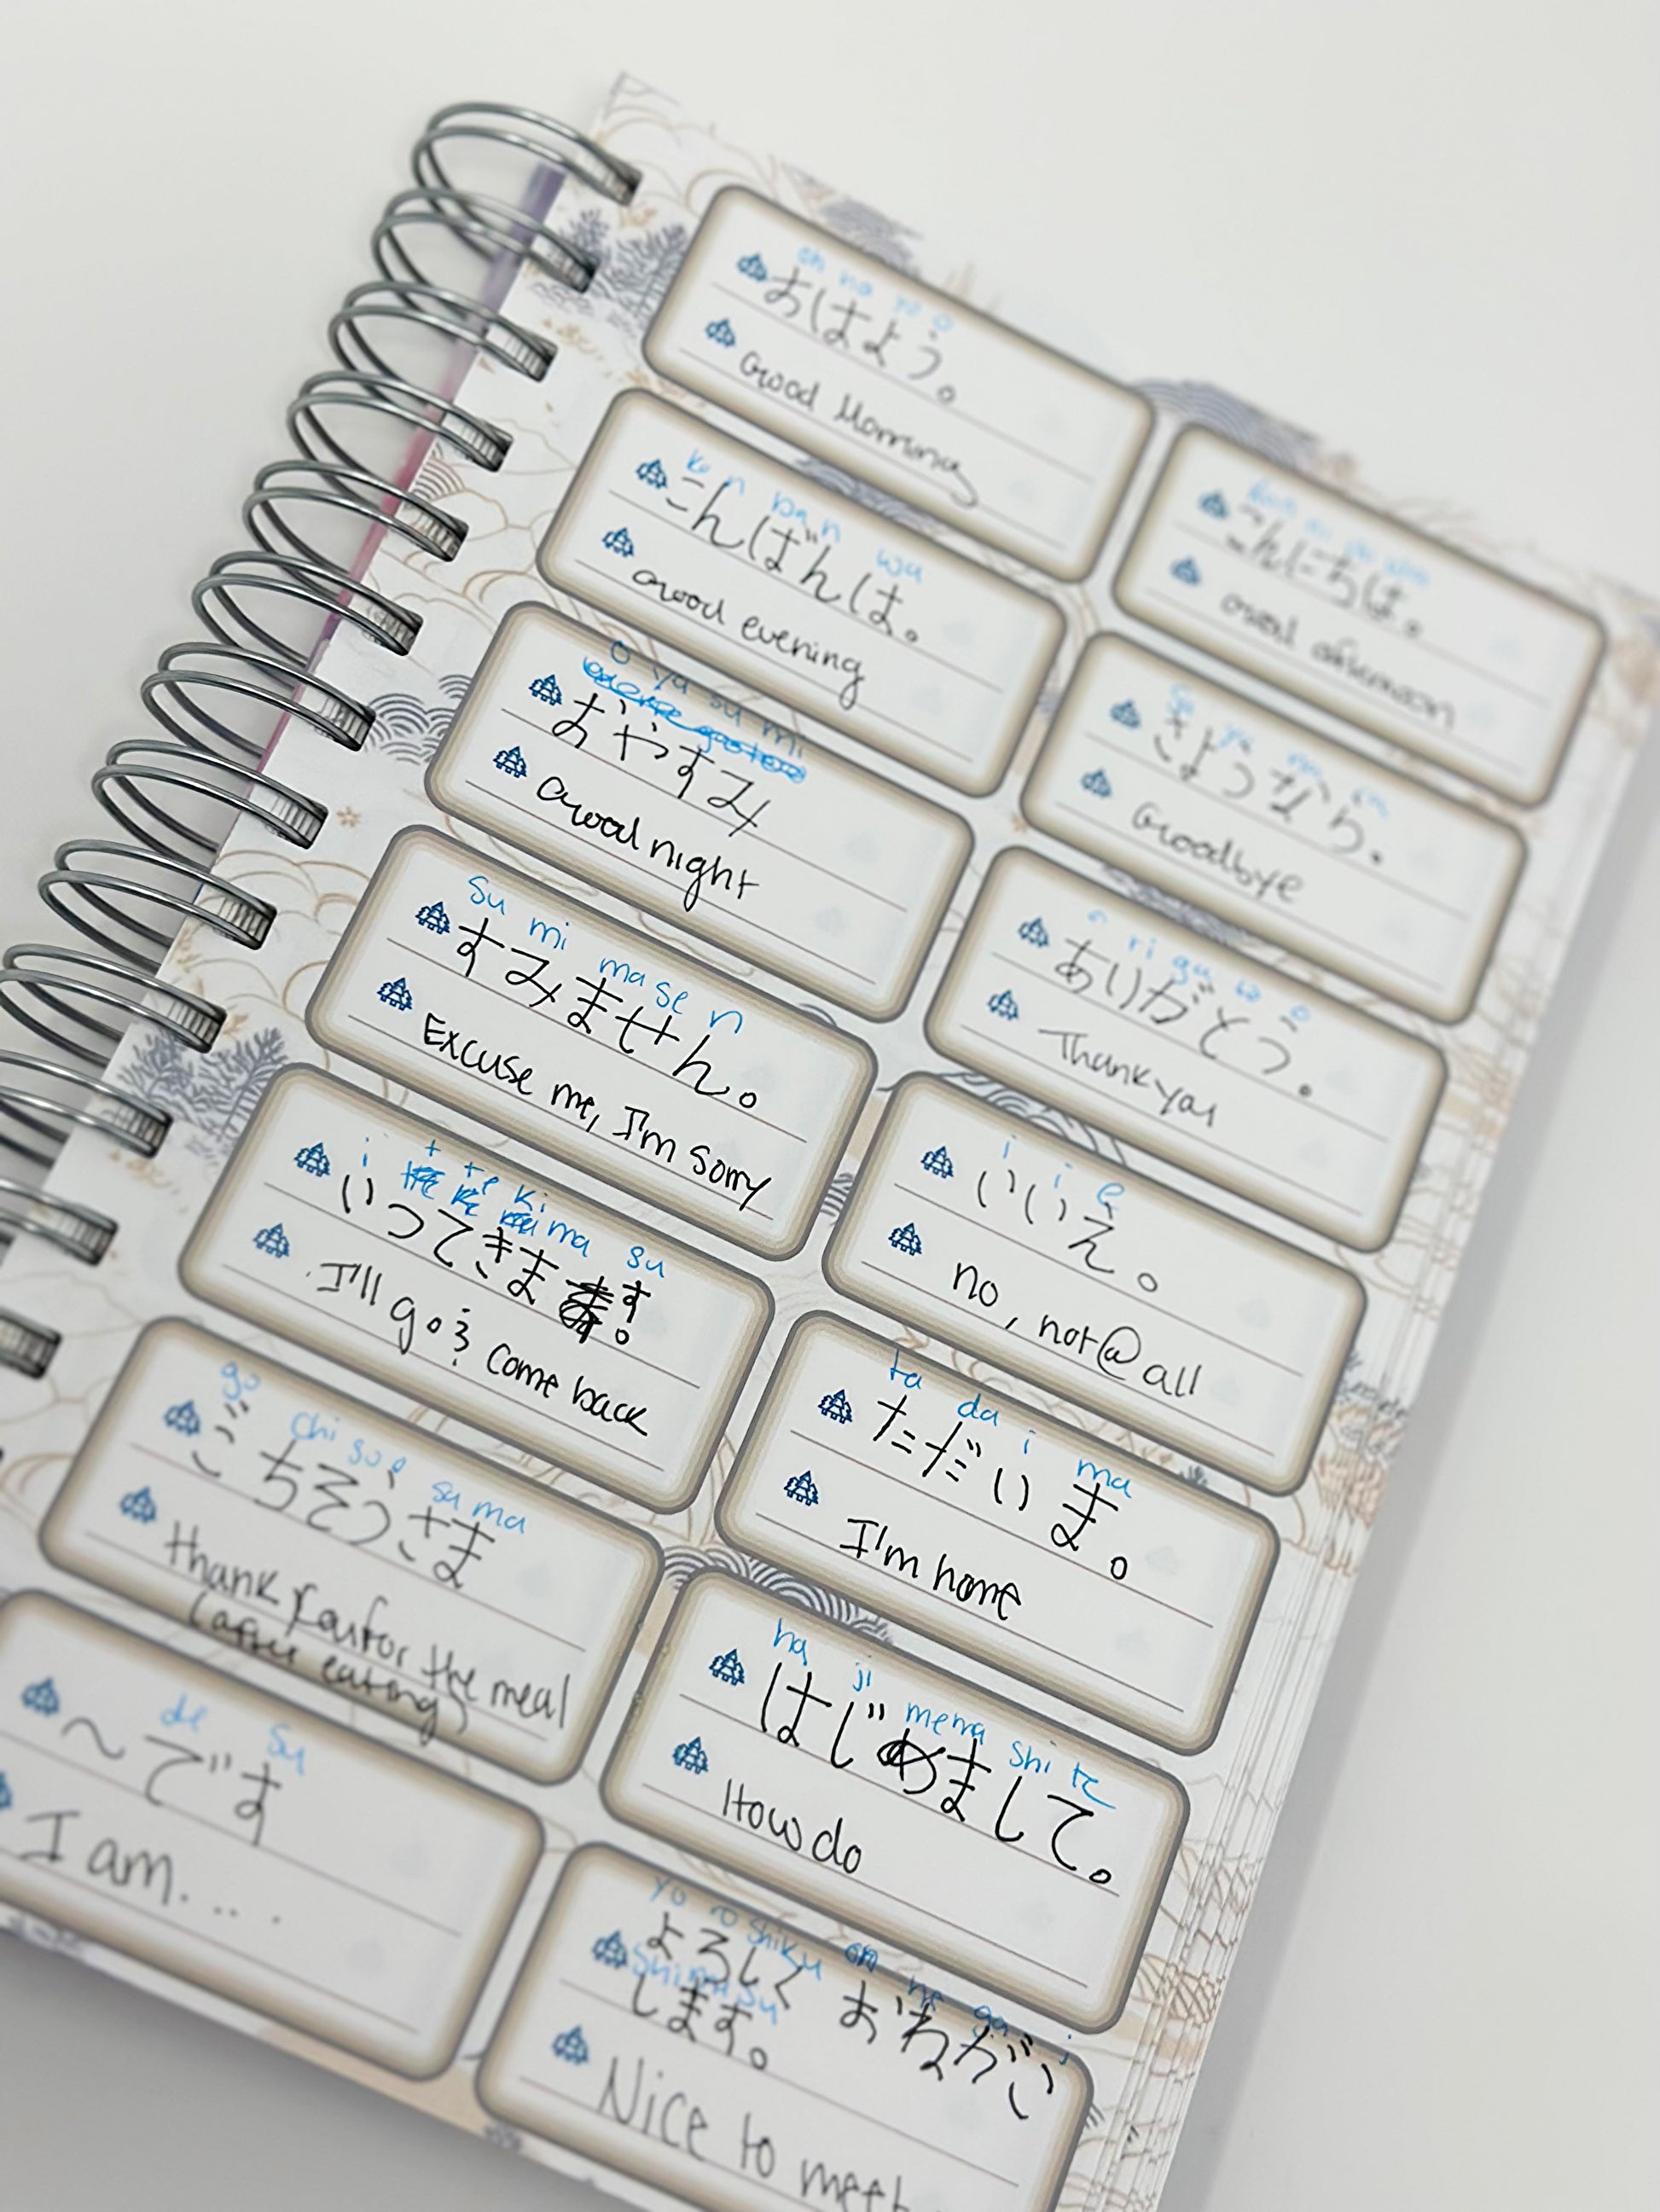 oh ha yo o
おはよう。
Good Morning
ko n ba n wa
こんばんは。
Good evening
こんにちは。
Good afternoon
o ya su mi
おやすみ
Good night
さようなら。
Goodbye
su mi ma se n
すみません。
Excuse me, I'm sorry
a ri ga to o
ありがとう。
Thank you
i t te ki ma su
いってきます。
I'll go & come back
i i e
いいえ。
no, not @ all
go chi so o sa ma
ごちそうさま
thank you for the meal
(after eating)
ta da i ma
ただいま。
I'm home
de su
～です
I am....
ha ji me ma shi te
はじめまして。
How do
yo ro shi ku o ne ga i
よろしく おねがい
shi ma su
します。
Nice to meet